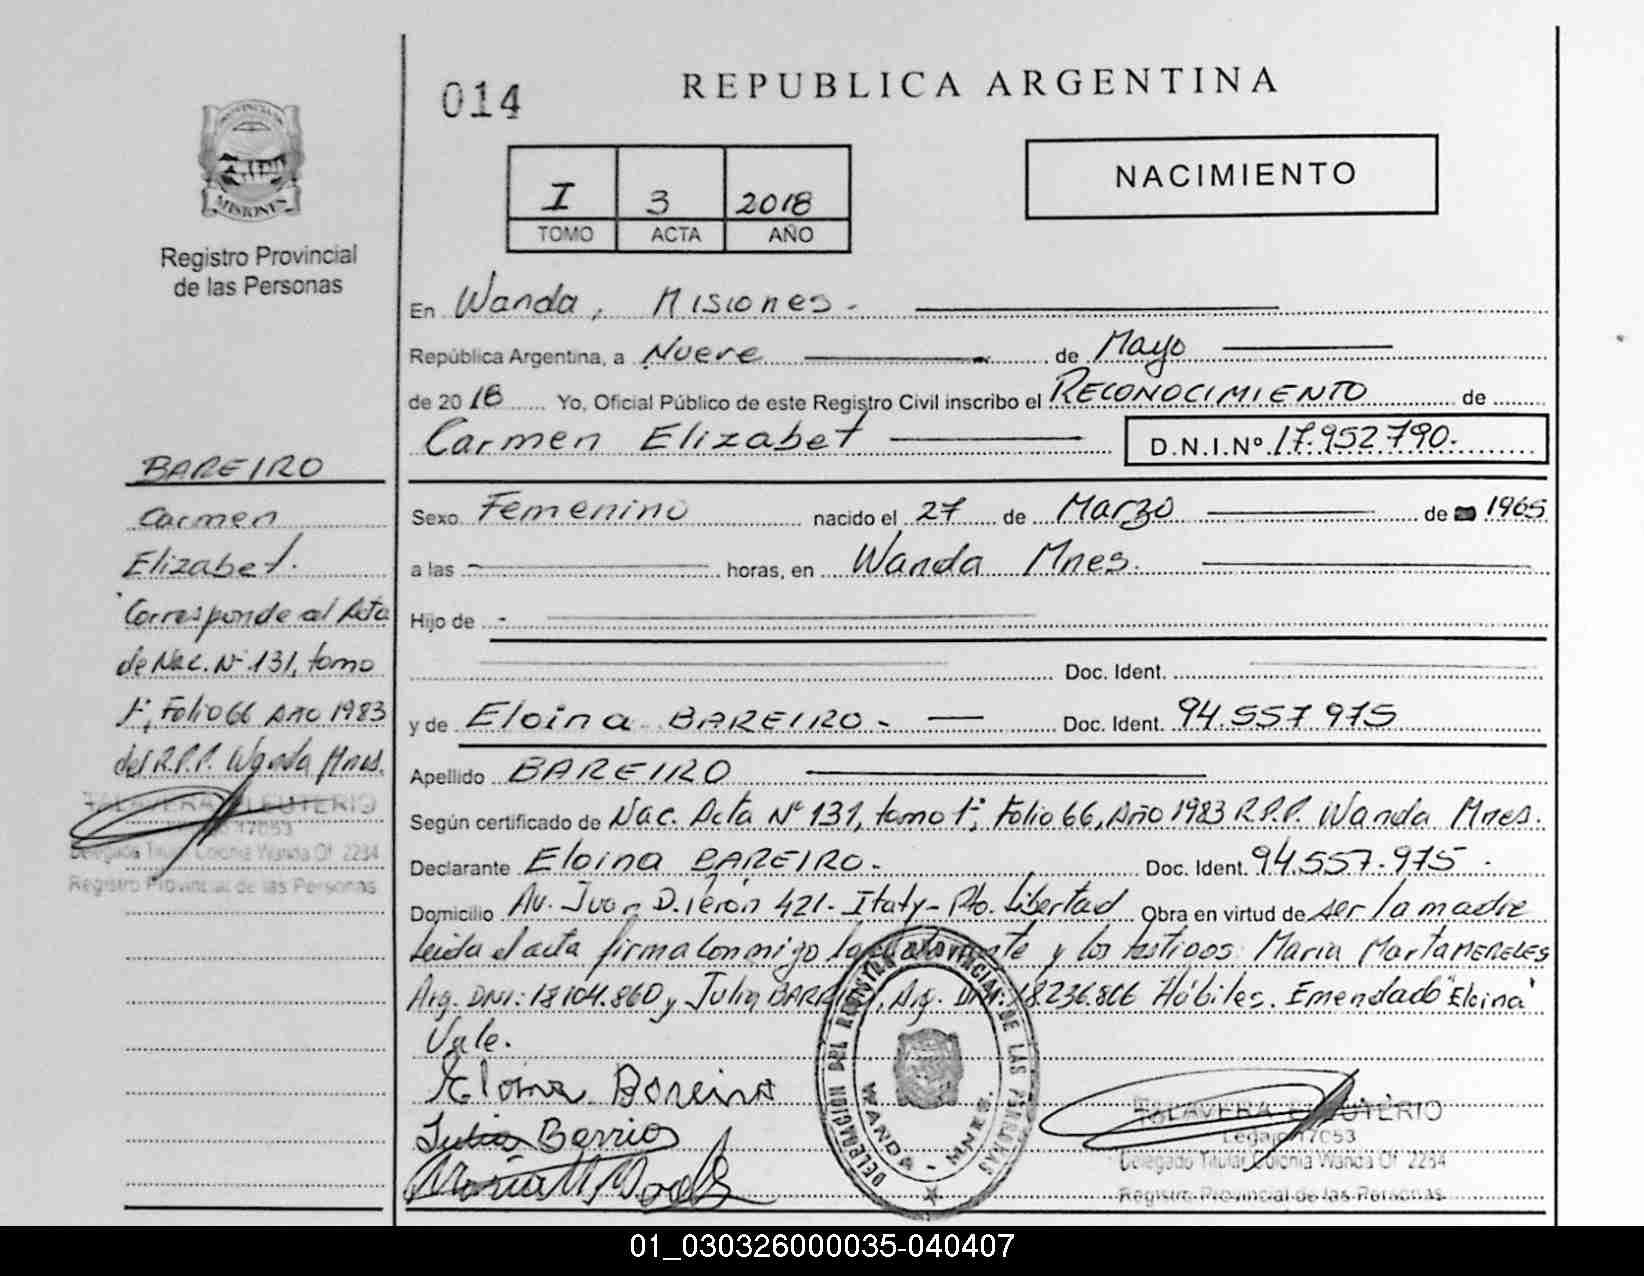 014
REPUBLICA ARGENTINA
PROVINCIA DE
MISIONES
Registro Provincial
de las Personas
I 3 2018
TOMO ACTA AÑO
NACIMIENTO
En Wanda, Misiones.
República Argentina, a Nueve de Mayo
de 2018 Yo, Oficial Público de este Registro Civil inscribo el RECONOCIMIENTO de
Carmen Elizabet D.N.I.Nº 17.952.790.
Sexo Femenino nacido el 27 de Marzo de 1965
a las horas, en Wanda Mnes.
Hijo de
Doc. Ident.
y de Eloina BAREIRO - Doc. Ident. 94.557.975
Apellido BAREIRO
Según certificado de Nac. Acta Nº 131, tomo 1º, Folio 66, Año 1983 R.P.P. Wanda Mnes.
Declarante Eloina BAREIRO. Doc. Ident. 94.557.975.
Domicilio Av. Juan D. Perón 421 - Itaty - Pto. Libertad Obra en virtud de ser la madre
Leida el acta firma conmigo la declarante y los testigos: Maria Marta MERELES
Arg. DNI: 18.104.860 y Julia Arg. DNI: 18.236.866 Hábiles. Emendado "Eloina"
Vale.
Eloina Bareiro
Julia Barrios
DELEGACION DEL REGISTRO PROVINCIAL DE LAS PERSONAS
WANDA - MNES.
TALAVERA ELEUTERIO
Legajo 17053
Delegado Titular Colonia Wanda Of. 2234
Registro Provincial de las Personas
BAREIRO
Carmen
Elizabet.
Corresponde al Acta
de Nac. Nº 131, tomo
1º, Folio 66 Año 1983
del R.P.P. Wanda Mnes.
TALAVERA ELEUTERIO
17053
Delegado Titular Colonia Wanda Of. 2234
Registro Provincial de las Personas
01_030326000035-040407